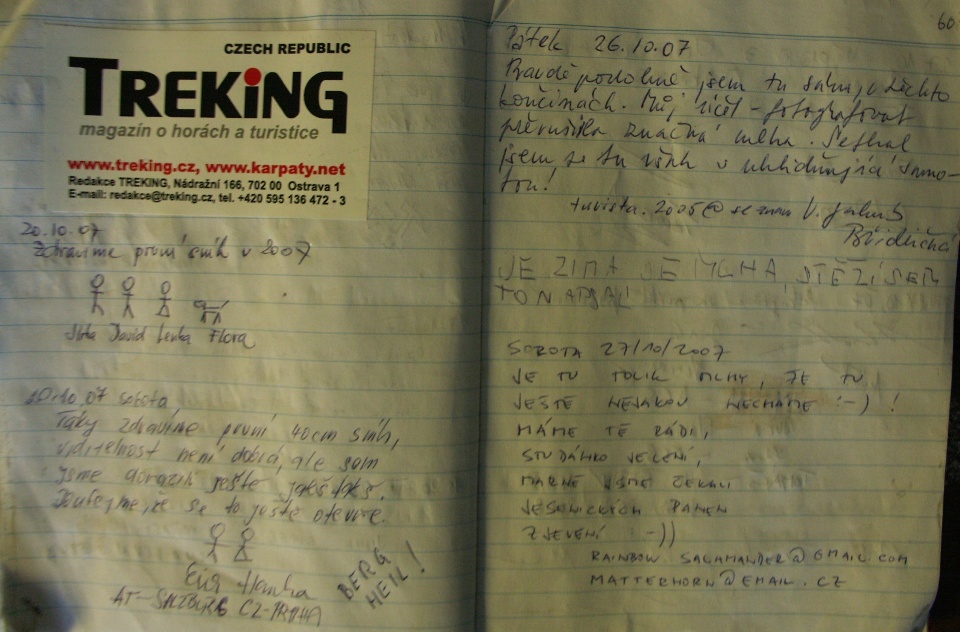 CZECH REPUBLIC
TREKiNG
magazín o horách a turistice
www.treking.cz, www.karpaty.net
Redakce TREKING, Nádražní 166, 702 00 Ostrava 1
E-mail: redakce@treking.cz, tel. +420 595 136 472 - 3
20.10.07
Zdravíme první sníh v 2007
David Lenka Flora
07 sobota
Taky zdravíme první 40cm sníh,
viditelnost není dobrá, ale sem
jsme dorazili ještě
Doufejme, že se to ještě otevře.
AT-SALZBURG CZ-PRAHA
BERG
HEIL!
60
Pátek 26.10.07
Pravděpodobně jsem tu sám, v těchto
končinách. Můj účel - fotografovat
přerušila značná mlha. Setkal
jsem se tu však s uklidňující samo-
tou!
turista.2005@seznam
JE ZIMA JE MLHA, STĚŽÍ JSEM
TO NAPSAL
SOBOTA 27/10/2007
JE TU TOLIK MLHY, ŽE TU
JEŠTĚ NĚJAKOU NECHÁME :-) !
MÁME TĚ RÁDI,
STUDÁNKO JELENÍ,
MARNĚ JSME ČEKALI
JESENICKÝCH PANEN
ZJEVENÍ :-))
RAINBOW.SALAMANDER@GMAIL.COM
MATTERHORN@EMAIL.CZ